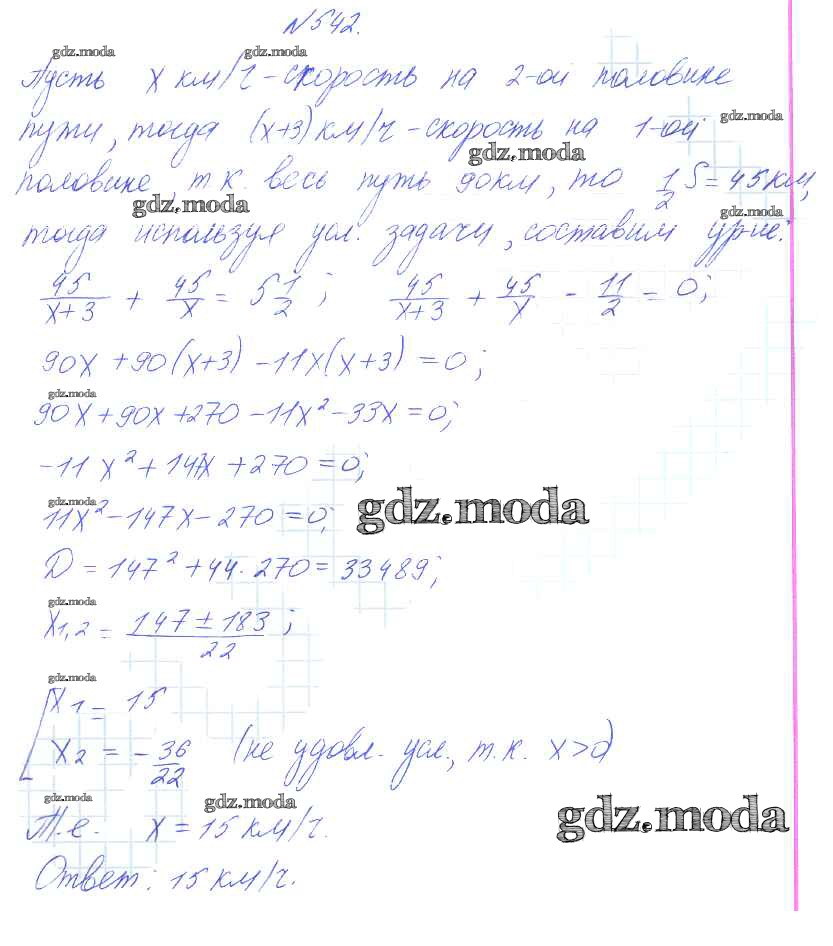 №542.
gdz.moda gdz.moda
Пусть x км/ч - скорость на 2-ой половине
пути, тогда (x+3) км/ч - скорость на 1-ой
gdz.moda
gdz.moda
половине, т.к. весь путь 90 км, то 1/2 S = 45 км,
gdz.moda
gdz.moda
тогда используя усл. задачи, составим ур-ие:
45/(x+3) + 45/x = 5 1/2 ; 45/(x+3) + 45/x - 11/2 = 0;
90x + 90(x+3) - 11x(x+3) = 0;
gdz.moda
90x + 90x + 270 - 11x² - 33x = 0;
-11x² + 147x + 270 = 0;
gdz.moda
11x² - 147x - 270 = 0;
gdz.moda
D = 147² + 44 · 270 = 33489;
gdz.moda
x1,2 = (147 ± 183)/22 ;
gdz.moda
x1 = 15
x2 = - 36/22 (не удовл. усл., т.к. x>0)
gdz.moda gdz.moda gdz.moda
Т.е. x = 15 км/ч.
Ответ: 15 км/ч.